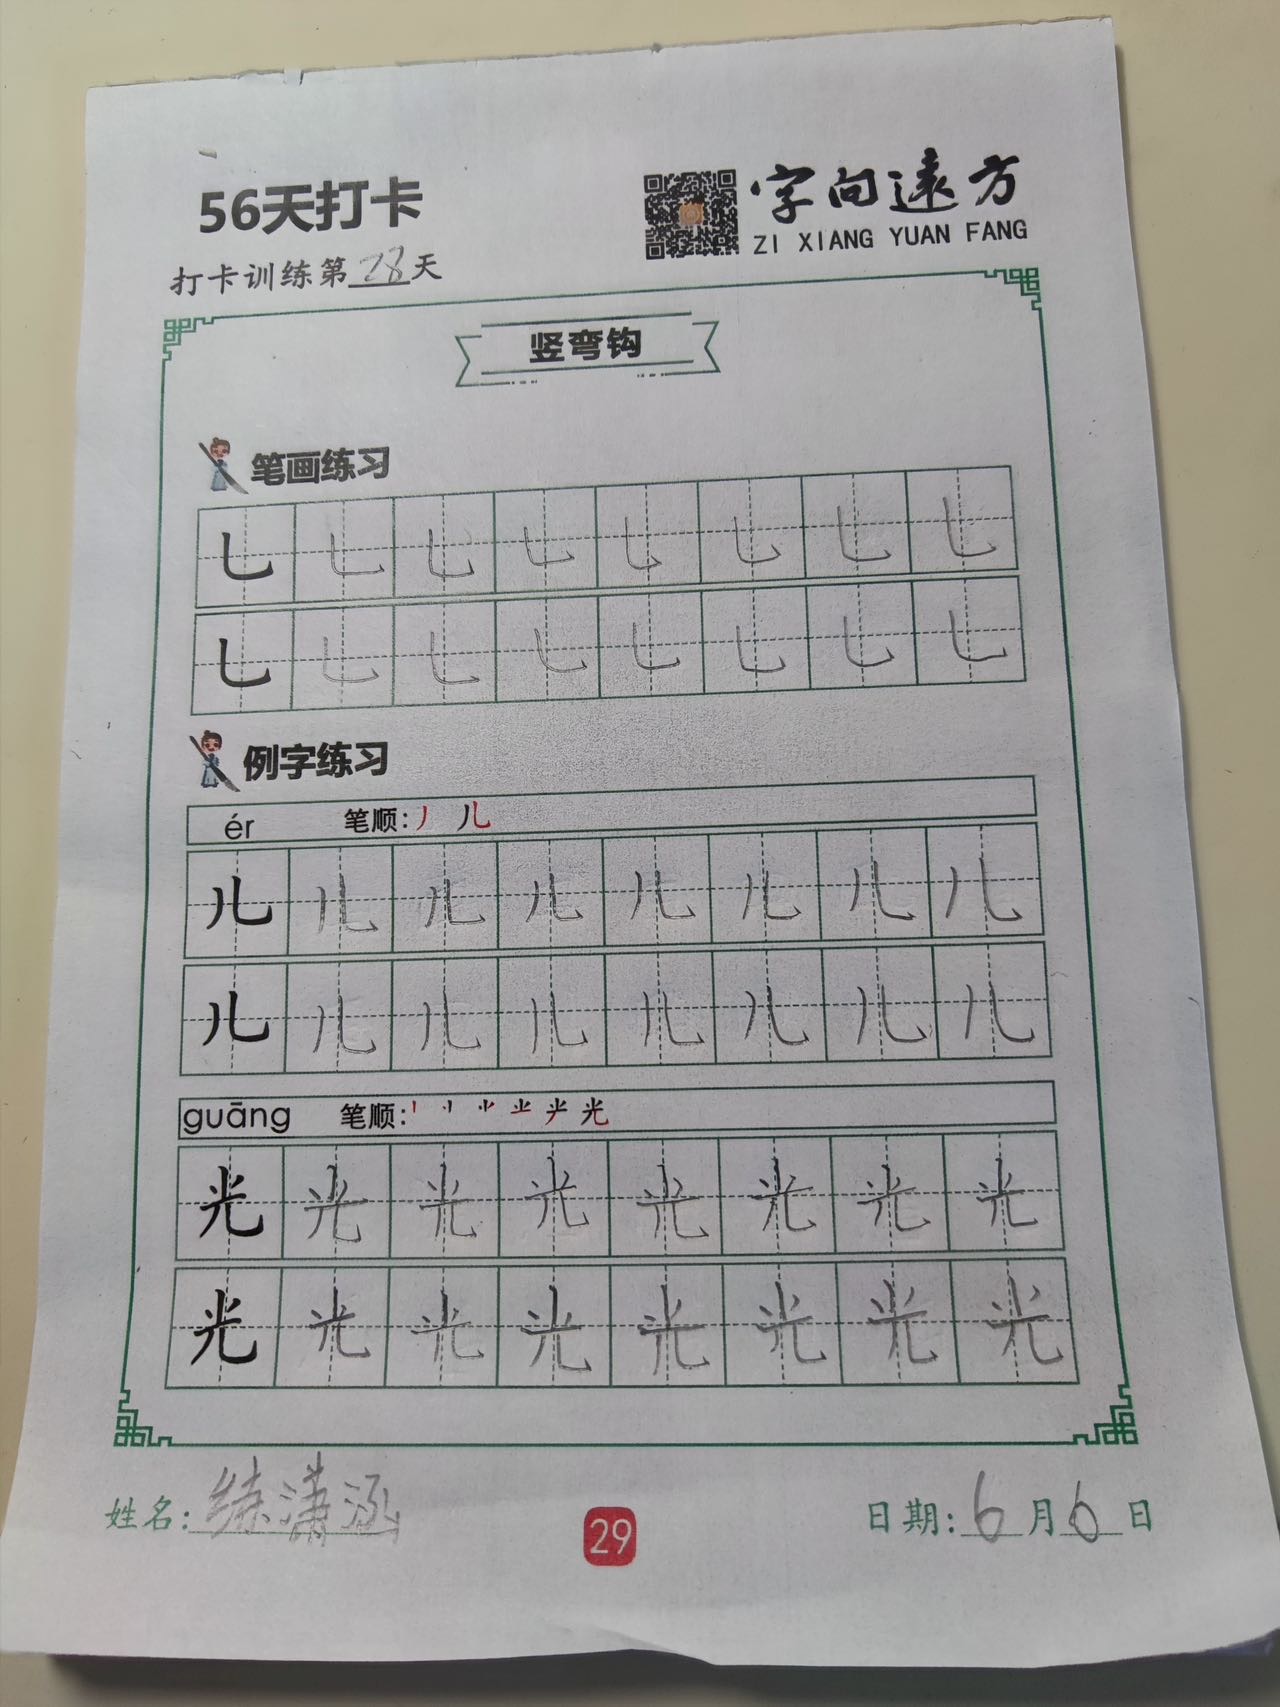 56天打卡
字向遠方
ZI XIANG YUAN FANG
打卡训练第28天
竖弯钩
笔画练习
乚 乚 乚 乚 乚 乚 乚 乚
乚 乚 乚 乚 乚 乚 乚 乚
例字练习
ér 笔顺: 丿 儿
儿 儿 儿 儿 儿 儿 儿 儿
儿 儿 儿 儿 儿 儿 儿 儿
guāng 笔顺: 光
光 光 光 光 光 光 光 光
光 光 光 光 光 光 光 光
姓名: 练潇涵
29
日期: 6月6日